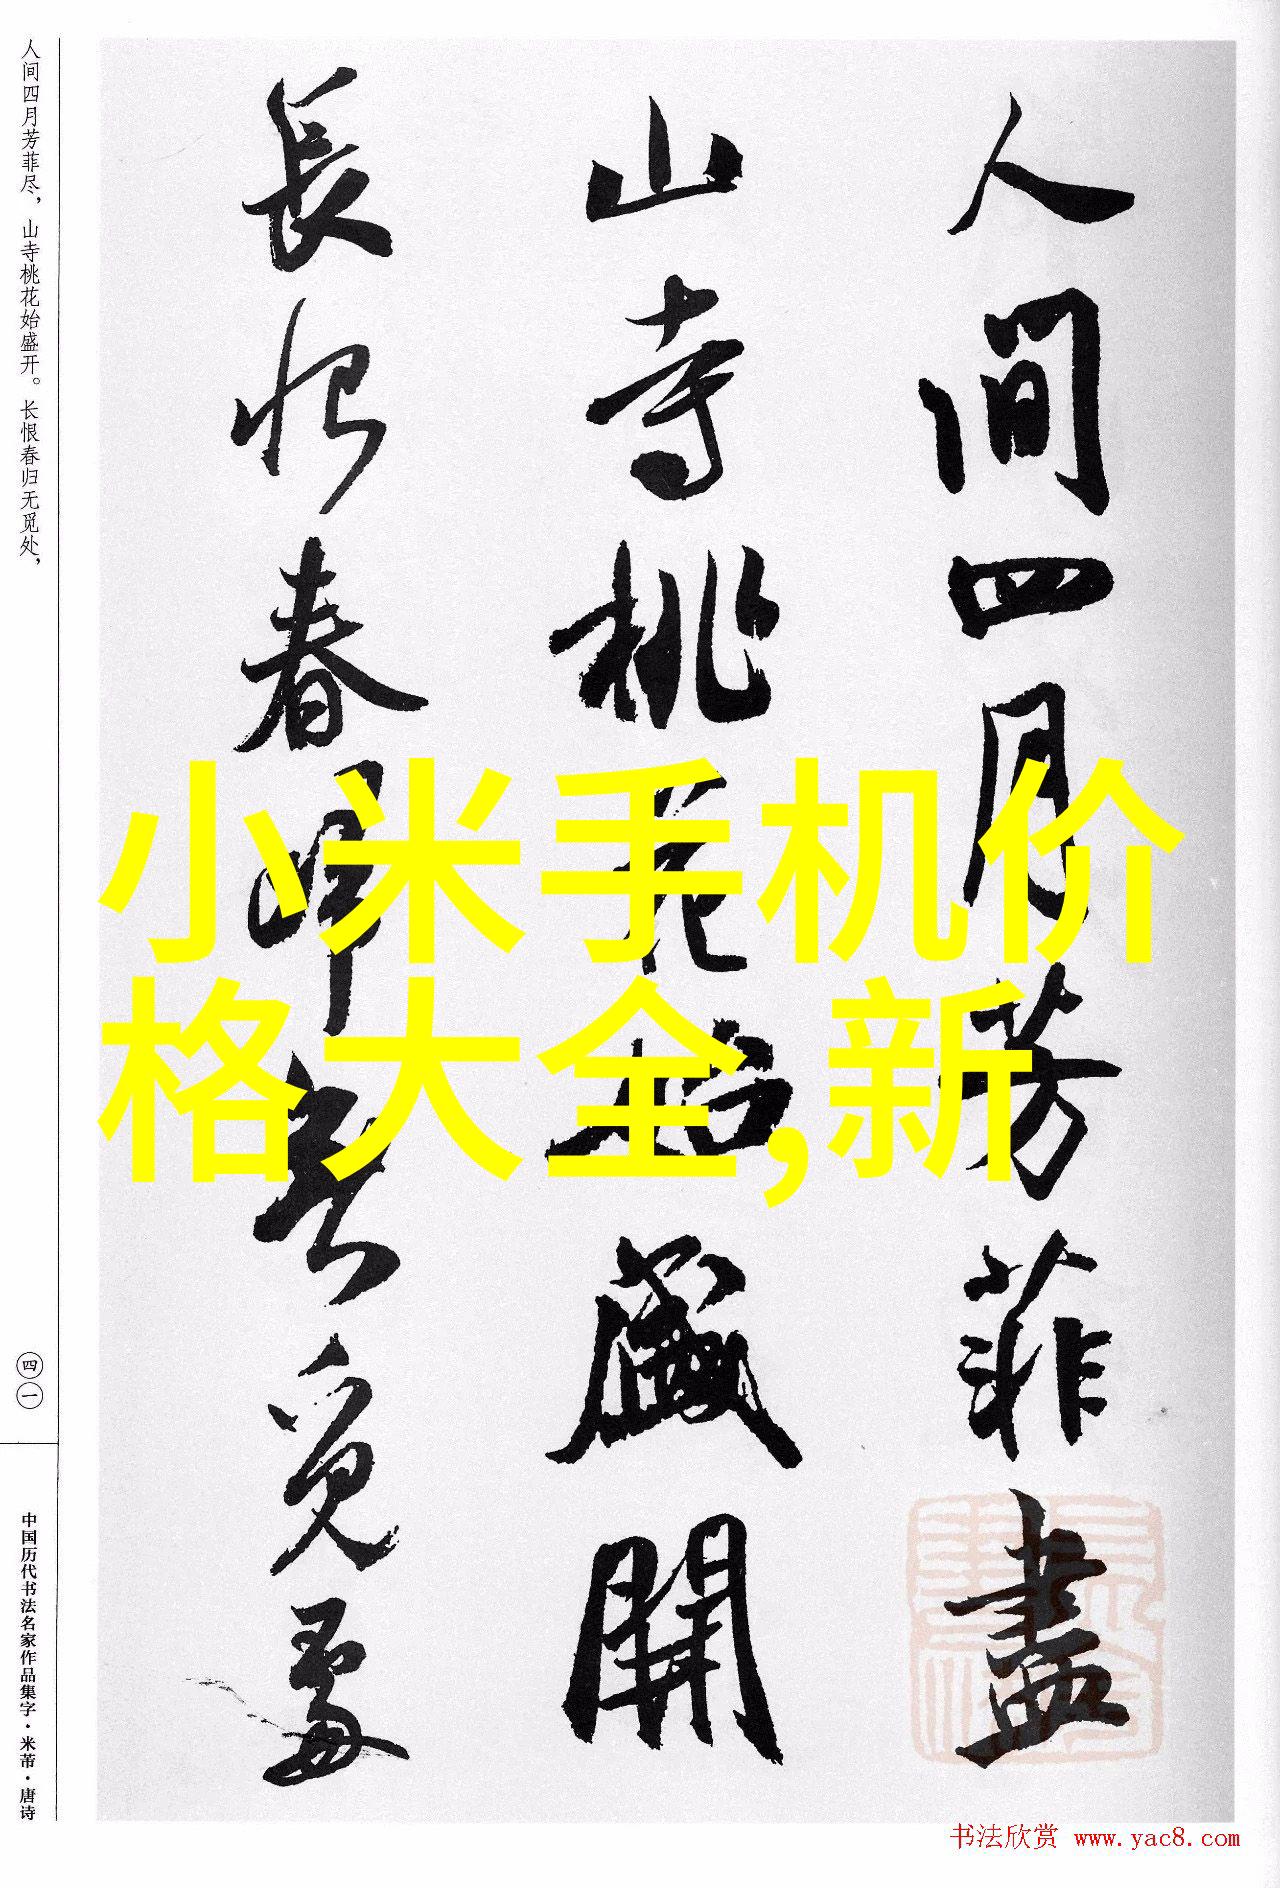 人間四月芳菲盡
山寺桃花始盛開
長恨春歸無覓處
小米手机价
格大全,新
人间四月芳菲尽，山寺桃花始盛开。长恨春归无觅处，
四一
中国历代书法名家作品集字·米芾·唐诗
书法欣赏 www.yac8.com